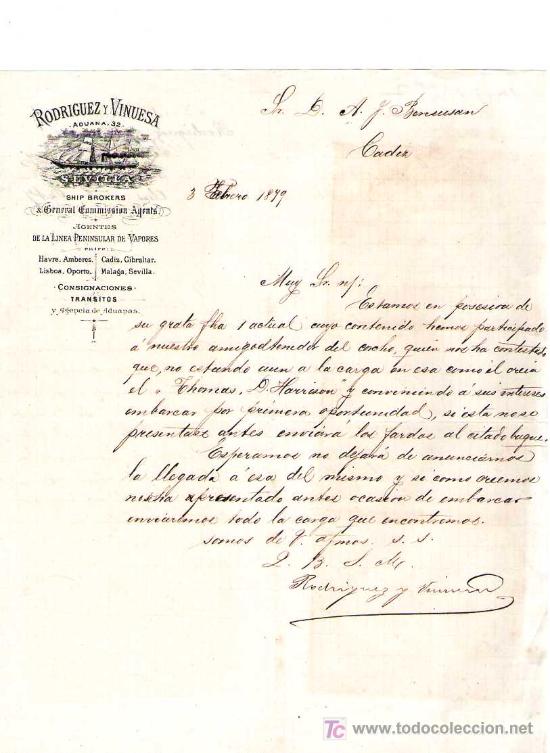 RODRIGUEZ Y VINUESA
ADUANA, 32.
SEVILLA
SHIP BROKERS
& General Commission Agents.
AGENTES
DE LA LINEA PENINSULAR DE VAPORES
ENTRE
Havre. Amberes. Cadiz, Gibraltar.
Lisboa. Oporto. Malaga, Sevilla.
CONSIGNACIONES
TRANSITOS
y Agencia de Aduanas.
Sr. D. A. J. Bensusan
Cadiz
3 Febrero 1879
Muy Sr. nj:
Estamos en posesion de
su grata fha 1 actual cuyo contenido hemos participado
á nuestro amigo tenedor del corcho, quien nos ha contestado
que, no estando aun a la carga en esa como él creia
el "Thomas, D. Harrison" y conveniendo á sus intereses
embarcar por primera oportunidad, si esta no se
presentase antes enviará los fardos al citado buque.
Esperamos no dejará de anunciarnos
la llegada á esa del mismo y si como creemos
no se ha presentado antes ocasion de embarcar
enviaremos todo la carga que encontremos.
somos de V. afmos. s. s.
Q. B. S. M.
Rodriguez y Vinuesa
TC www.todocoleccion.net